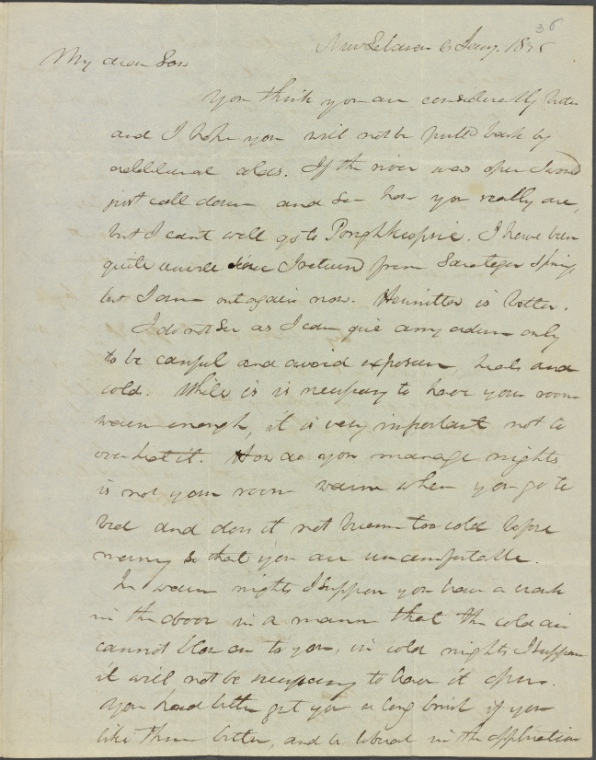 36
New Lebanon 6 Jany. 1836
My dear Son
You think you are considerably better
and I hope you will not be putt back by
additional colds. If the river was open I would
just call down and see how you really are,
but I cant well go to Poughkeepsie. I have been
quite unwell since I returned from Saratoga Springs
but I am out again now. Henrietta is better.
I do not see as I can give any advice only
to be careful and avoid exposure, heat and
cold. While is is necessary to have your room
warm enough, it is very important not to
over heat it. How do you manage nights
is not your room warm when you go to
bed and does it not become too cold before
morning so that you are uncomfortable.
In warm nights I suppose you have a crack
in the door in a manner that the cold air
cannot blow on to you, in cold nights I suppose
it will not be necessary to have it open.
You had better get you a long brush if you
like them better, and be liberal in the application